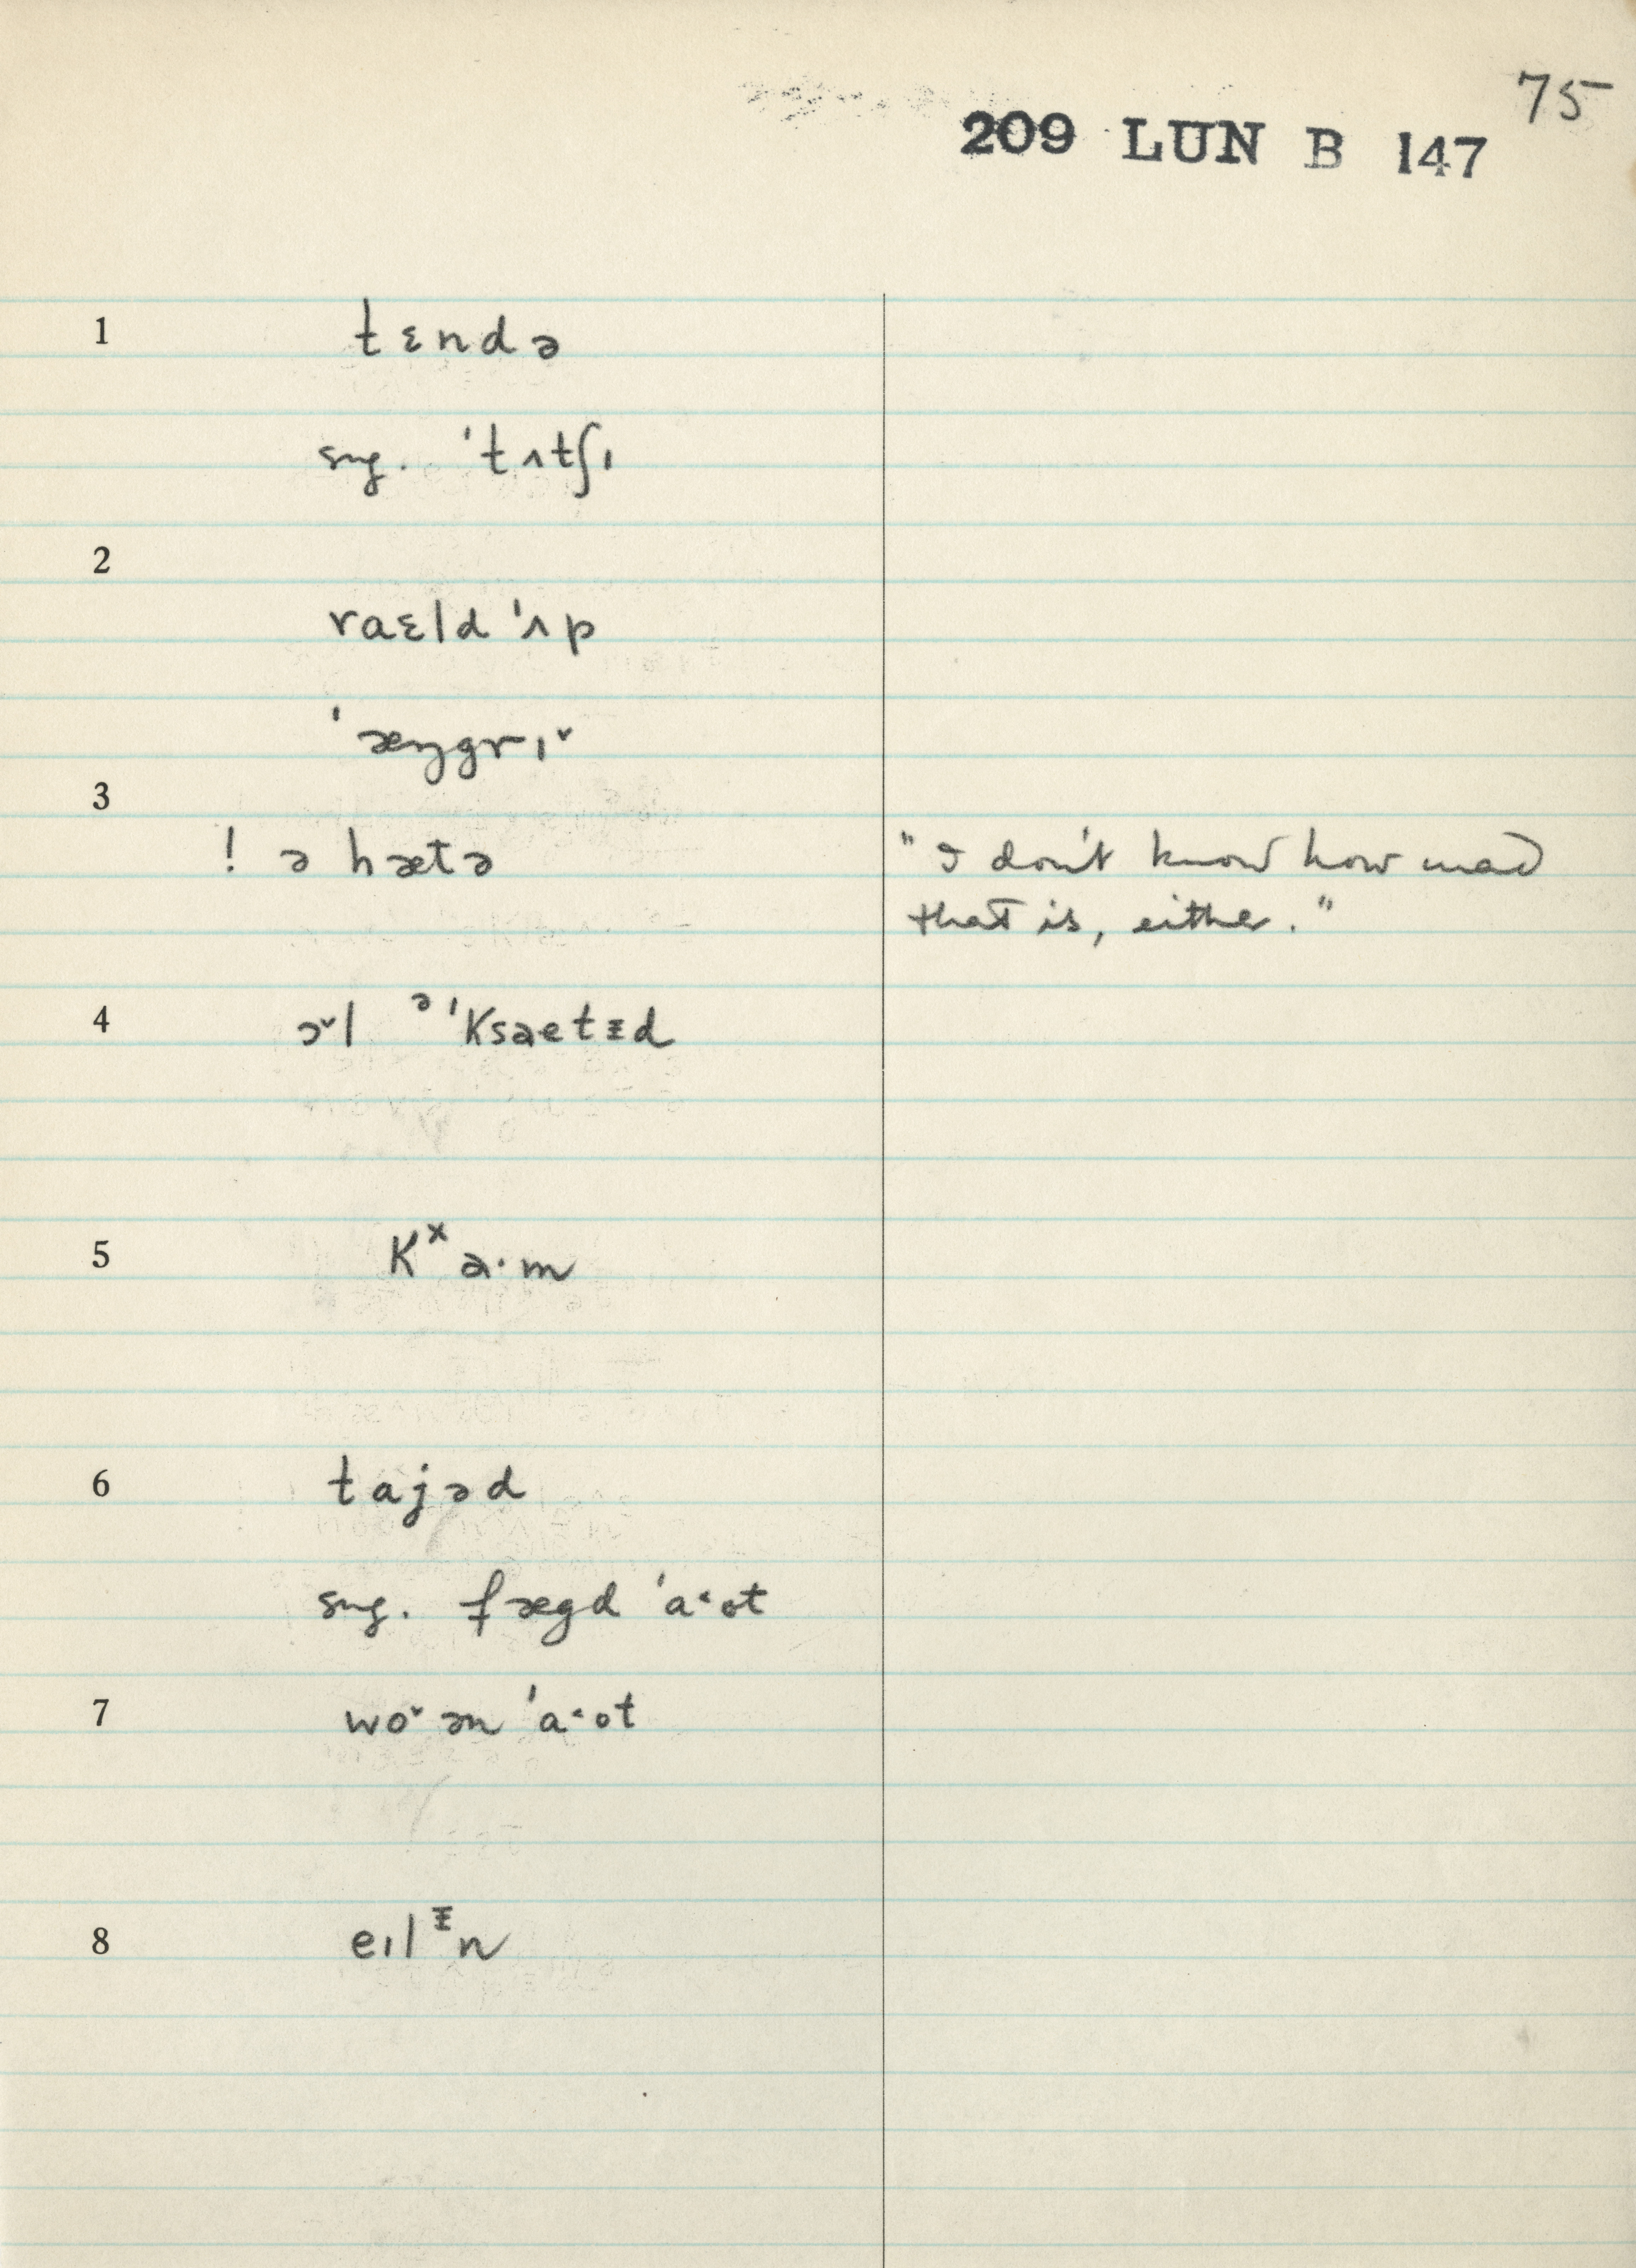 75
209 LUN B 147
1 tɛndə
sug. ˈtʌtʃɪ
2
raɛld ˈʌp
ˈæŋgrɪ˅
3
! ə hætə "I don't know how mad
that is, either."
4 ɔ˅l ᵊˈKsaetɪ̵d
5 Kˣa·m
6 tajəd
sug. fægd ˈa˂ot
7 wo˅ən ˈa˂ot
8 eɪlᵻn